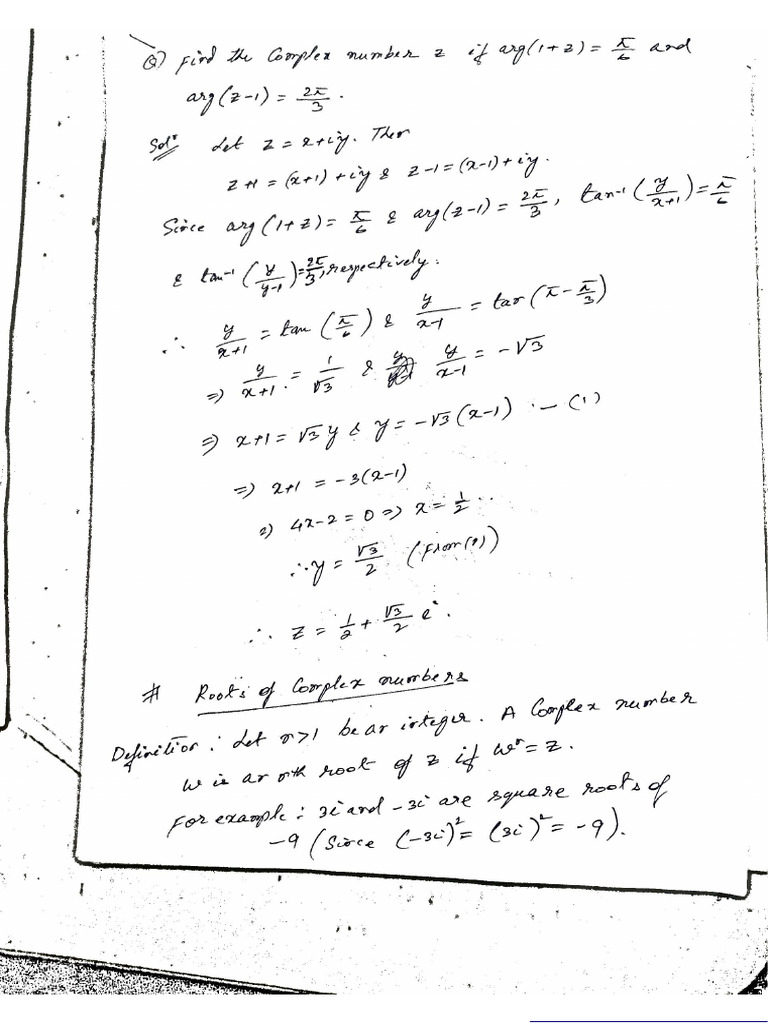 Q) Find the Complex number z if arg(1+z) = π/6 and
arg(z-1) = 2π/3.
Solⁿ Let z = x+iy. Then
z+1 = (x+1) + iy & z-1 = (x-1) + iy.
Since arg(1+z) = π/6 & arg(z-1) = 2π/3, tan⁻¹(y/(x+1)) = π/6
& tan⁻¹(y/(y-1)) = 2π/3, respectively.
∴ y/(x+1) = tan(π/6) & y/(x-1) = tan(π - π/3)
⇒ y/(x+1) = 1/√3 & y/(x-1) = -√3
⇒ x+1 = √3y & y = -√3(x-1) . — (1)
⇒ x+1 = -3(x-1)
⇒ 4x-2 = 0 ⇒ x = 1/2 ..
∴ y = √3/2 (From (1))
∴ z = 1/2 + √3/2 i.
# Roots of Complex numbers
Definition: Let n>1 be an integer. A Complex number
w is an nth root of z if wⁿ = z.
For example: 3i and -3i are square roots of
-9 (Since (-3i)² = (3i)² = -9).